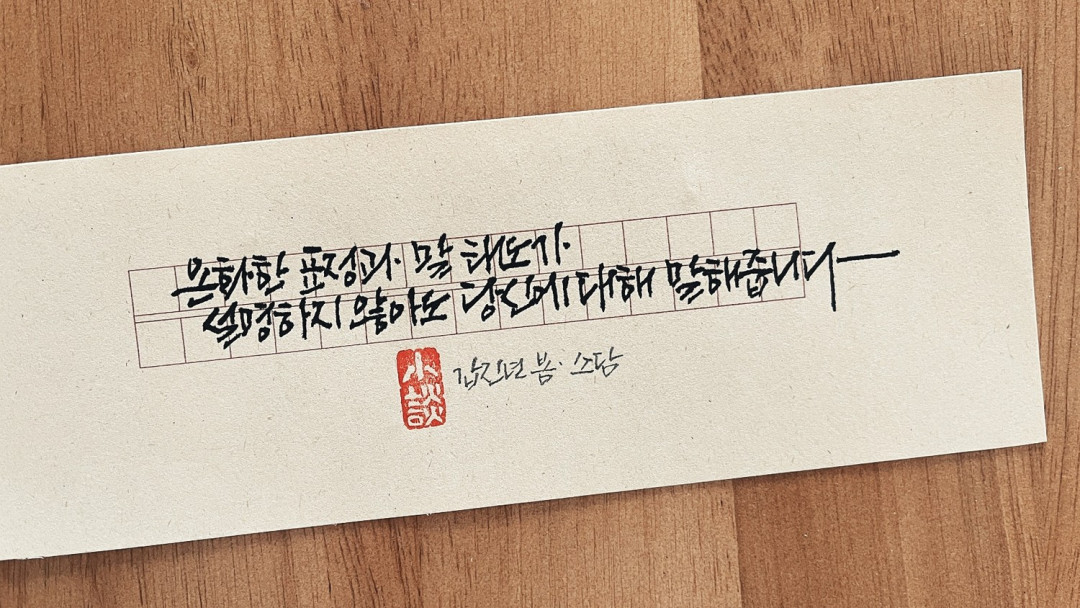 온화한 표정과 말 태도가
설명하지 않아도 당신에 대해 말해줍니다
小談
갑진년 봄. 소담